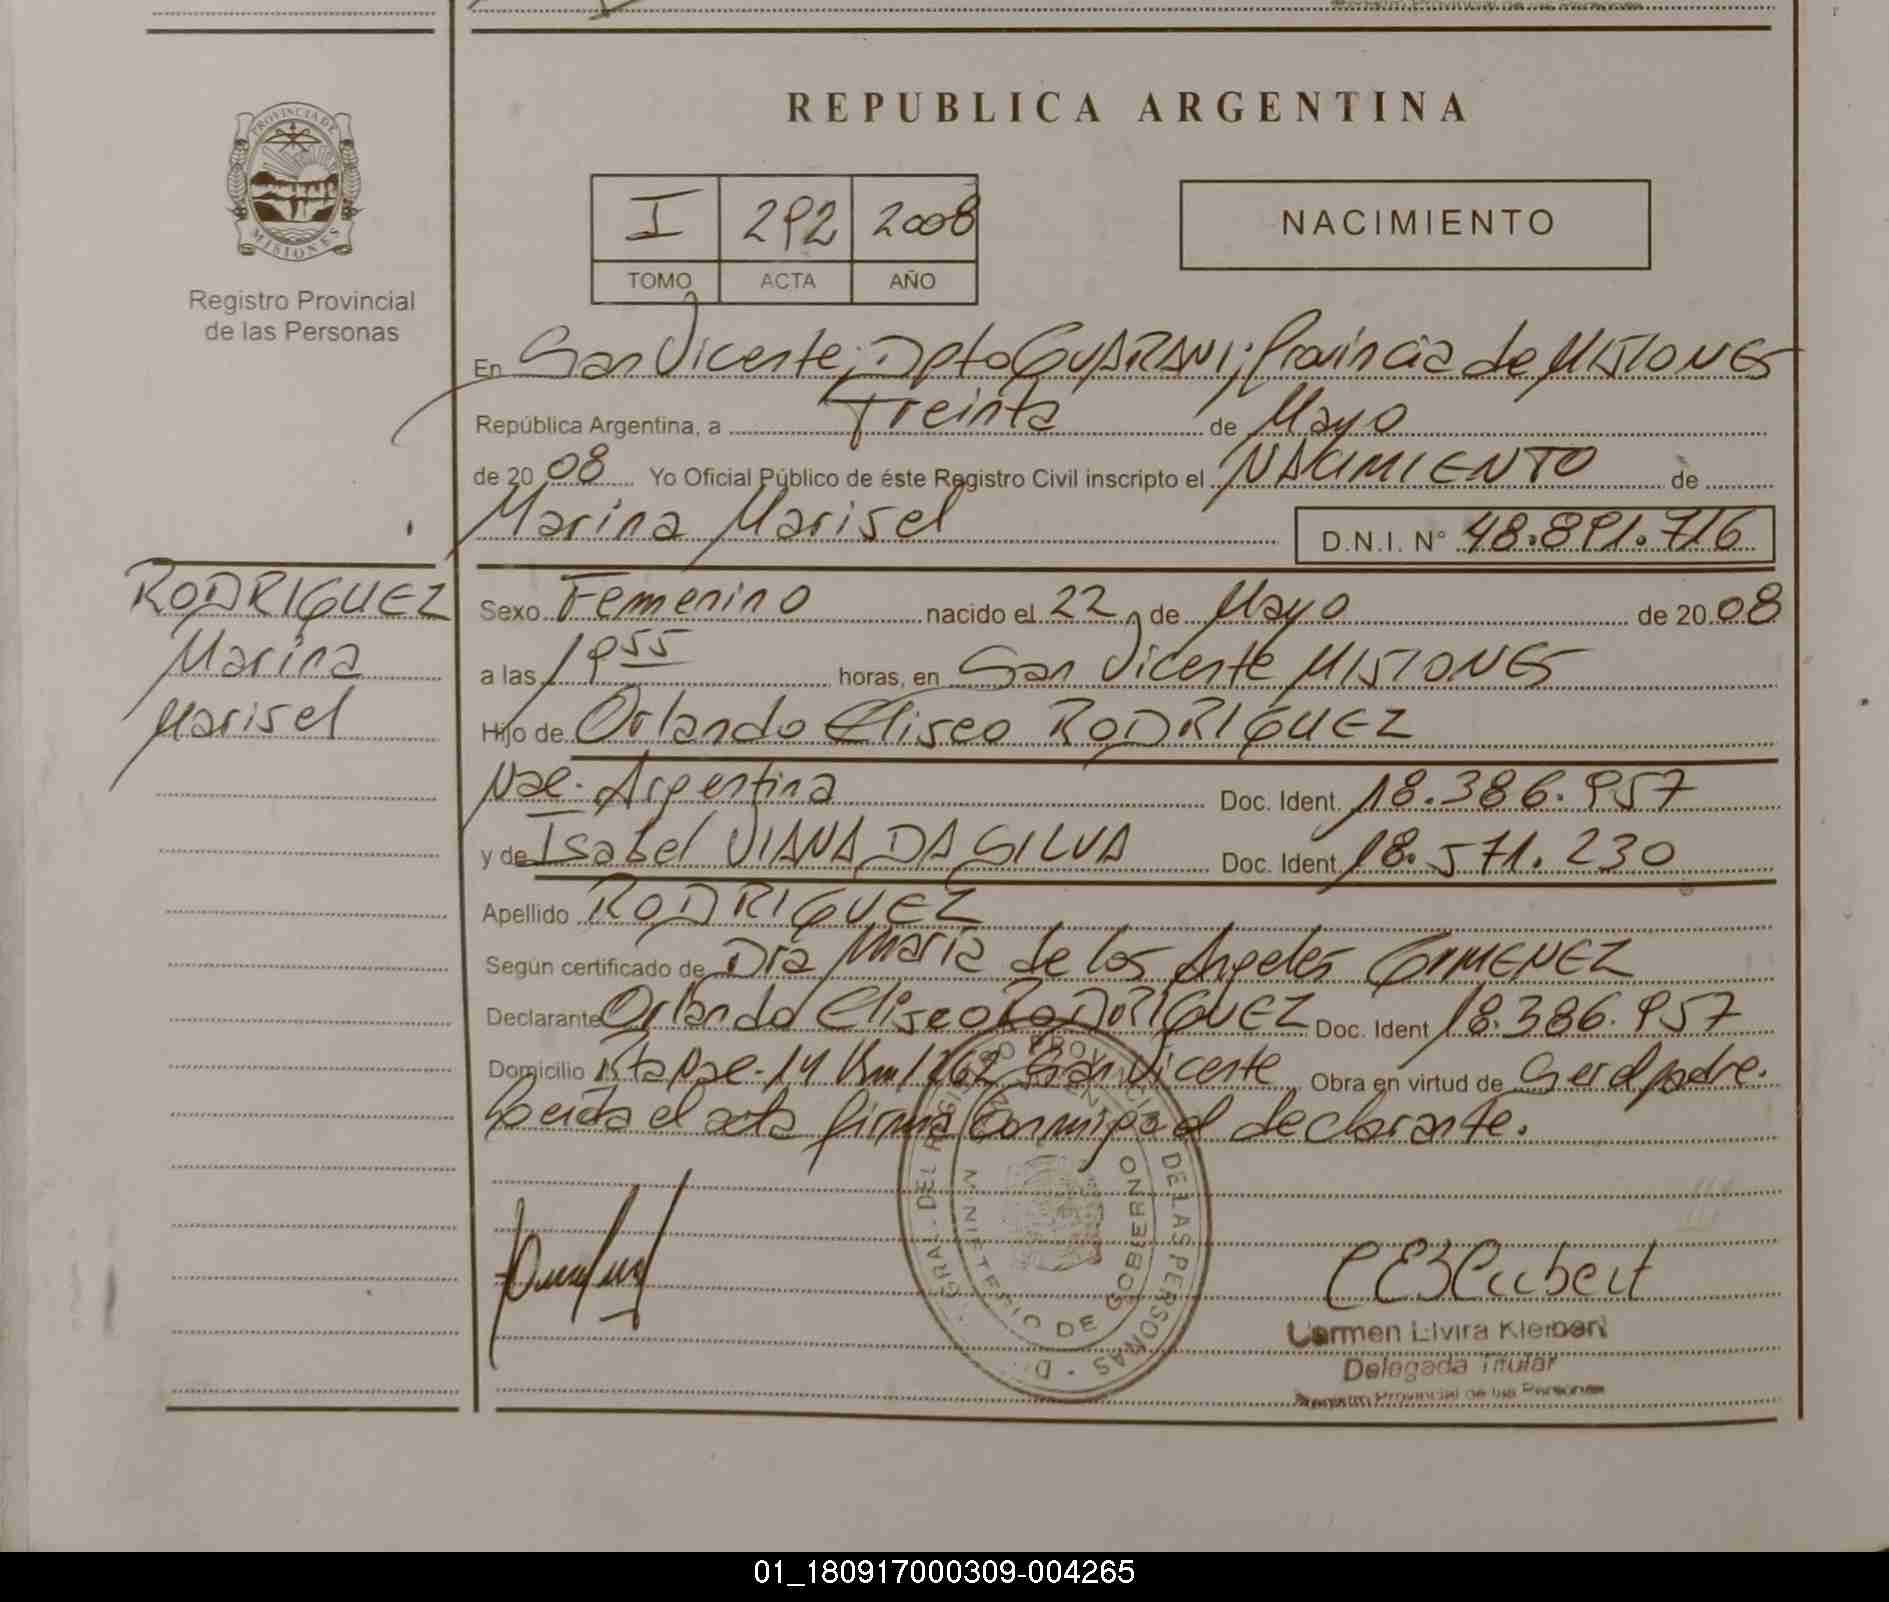 REPUBLICA ARGENTINA
PROVINCIA DE
MISIONES
Registro Provincial
de las Personas
I 292 2008
TOMO ACTA AÑO
NACIMIENTO
En San Vicente, Dpto GUARANI; Provincia de MISIONES
República Argentina, a Treinta de Mayo
de 2008 Yo Oficial Público de éste Registro Civil inscripto el NACIMIENTO de
Marina Marisel D.N.I. N° 48.891.716
RODRIGUEZ
Marina
Marisel
Sexo Femenino nacido el 22 de Mayo de 2008
a las 19 55 horas, en San Vicente MISIONES
Hijo de Orlando Eliseo RODRIGUEZ
Nac. Argentina Doc. Ident. 18.386.957
y de Isabel VIANA DA SILVA Doc. Ident. 18.571.230
Apellido RODRIGUEZ
Según certificado de Dra María de los Angeles GIMENEZ
Declarante Orlando Eliseo RODRIGUEZ Doc. Ident 18.386.957
Domicilio Rta Nac. 14 Km 1262 San Vicente Obra en virtud de Ser el padre.
Leída el acta firma conmigo el declarante.
MINISTERIO DE GOBIERNO
DE LAS PERSONAS
Carmen Elvira Kleibert
Delegada Titular
Registro Provincial de las Personas
01_180917000309-004265